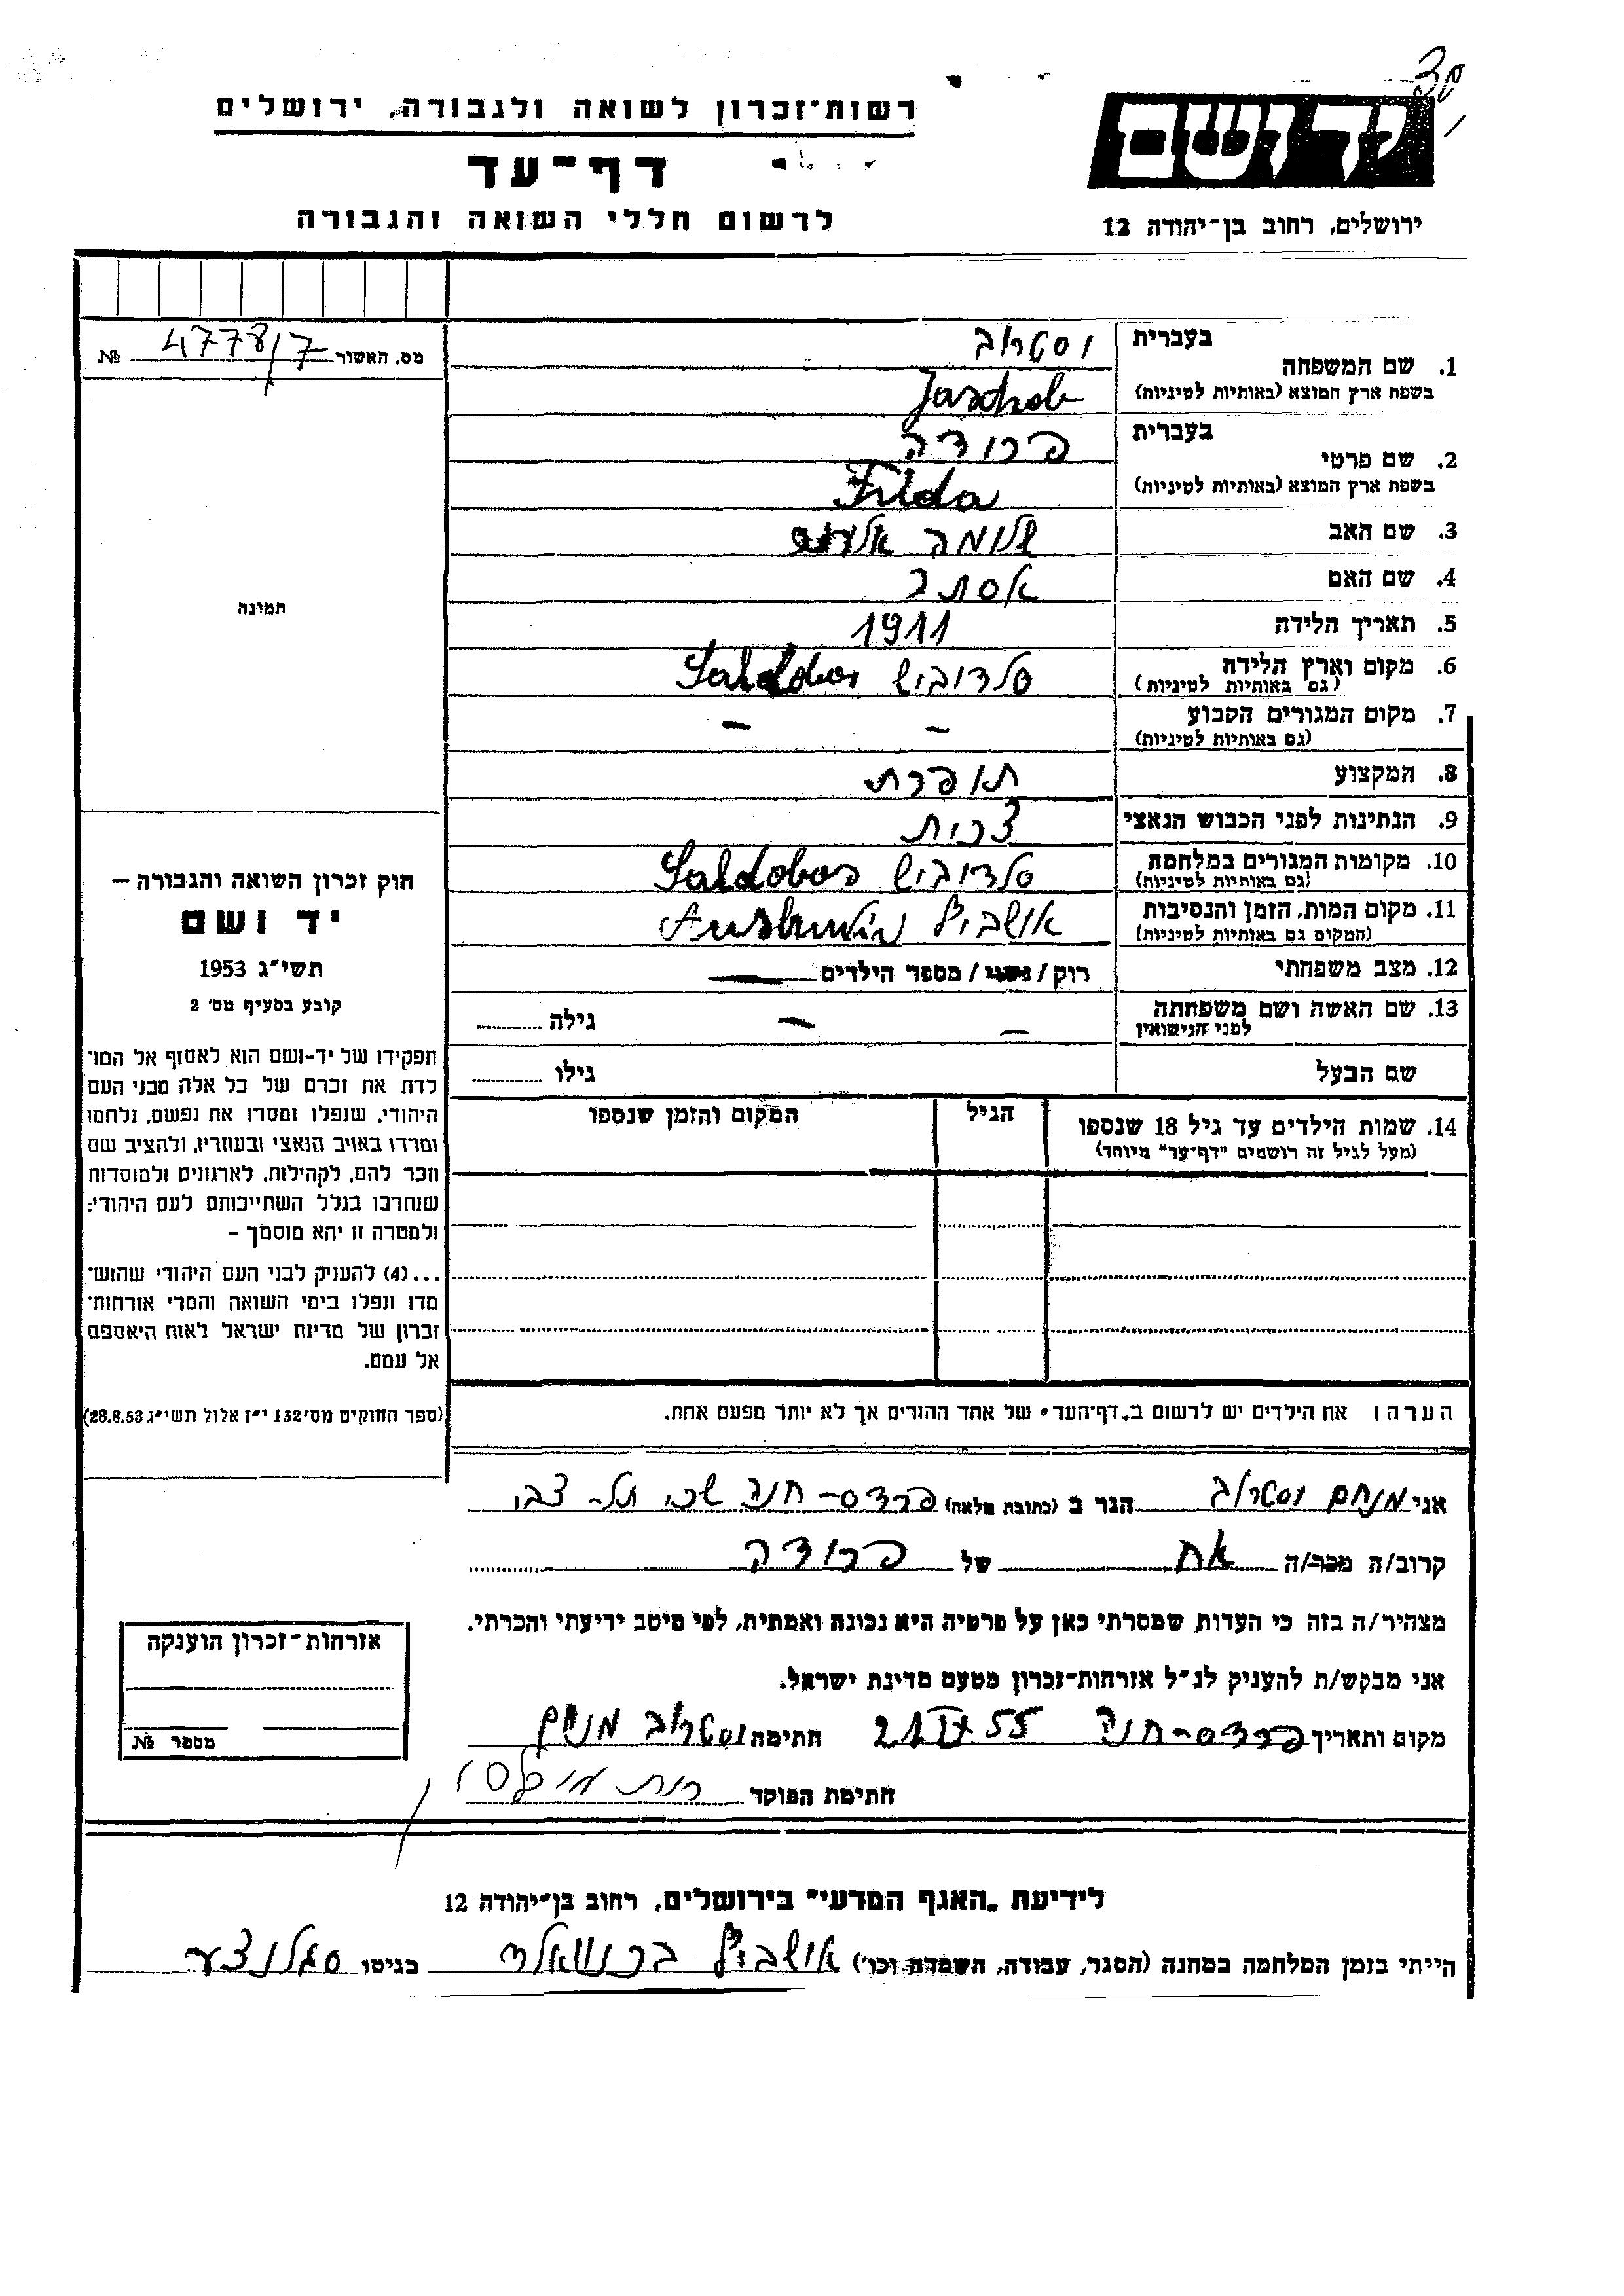 רשות־זכרון לשואה ולגבורה, ירושלים
דף־עד
לרשום חללי השואה והגבורה
יד ושם
ירושלים, רחוב בן־יהודה 12
מס. האשור 47781/7 №
תמונה
1. שם המשפחה
בעברית
וסטרוב
בשפת ארץ המוצא (באותיות לטיניות)
2. שם פרטי
בעברית
פרודה
בשפת ארץ המוצא (באותיות לטיניות) Frida
3. שם האב שלומה
4. שם האם אסתר
5. תאריך הלידה 1911
6. מקום וארץ הלידה סלדוביש Saldobos
(גם באותיות לטיניות)
7. מקום המגורים הקבוע – –
(גם באותיות לטיניות)
8. המקצוע תופרת
9. הנתינות לפני הכבוש הנאצי
10. מקומות המגורים במלחמה סלדוביש Saldobos
(גם באותיות לטיניות)
11. מקום המות, הזמן והנסיבות אושביץ
(המקום גם באותיות לטיניות)
12. מצב משפחתי רוק/נשוי/מספר הילדים
13. שם האשה ושם משפחתה – – גילה
לפני הנישואין
שם הבעל גילו
14. שמות הילדים עד גיל 18 שנספו
(מעל לגיל זה רושמים "דף־עד" מיוחד)
הגיל
המקום והזמן שנספו
חוק זכרון השואה והגבורה –
יד ושם
תשי״ג 1953
קובע בסעיף מס׳ 2
תפקידו של יד-ושם הוא לאסוף אל המו־
לדת את זכרם של כל אלה מבני העם
היהודי, שנפלו ומסרו את נפשם, נלחמו
ומרדו באויב הנאצי ובעוזריו, ולהציב שם
וזכר להם, לקהילות, לארגונים ולמוסדות
שנחרבו בגלל השתייכותם לעם היהודי;
ולמטרה זו יהא מוסמך –
...(4) להעניק לבני העם היהודי שהוש־
מדו ונפלו בימי השואה והמרי אזרחות־
זכרון של מדינת ישראל לאות היאספם
אל עמם.
(ספר החוקים מס׳ 132 י״ז אלול תשי״ג 28.8.53)
הערה: את הילדים יש לרשום ב„דף־העד״ של אחד ההורים אך לא יותר מפעם אחת.
אני מנחם וסטרוב הגר ב (כתובת מלאה) פרדס-חנה שכ. תל- צבי
קרוב/ה מכר/ה אח של פרודה
מצהיר/ה בזה כי העדות שמסרתי כאן על פרטיה היא נכונה ואמתית, לפי מיטב ידיעתי והכרתי.
אני מבקש/ת להעניק לנ״ל אזרחות־זכרון מטעם מדינת ישראל.
מקום ותאריך פרדס-חנה 21 IV 55 חתימה וסטרוב מנחם
חתימת הפוקד
אזרחות־זכרון הוענקה
מספר №
לידיעת „האגף המדעי״ בירושלים, רחוב בן־יהודה 12
הייתי בזמן המלחמה במחנה (הסגר, עבודה, השמדה וכו׳) אושביץ בכנוואלד בגיטו